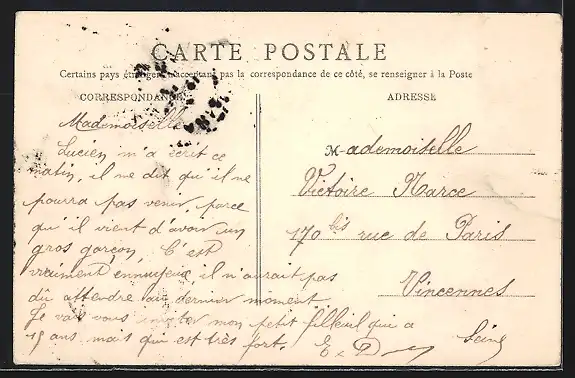 CARTE POSTALE
Certains pays étrangers n'acceptant pas la correspondance de ce côté, se renseigner à la Poste
CORRESPONDANCE
Mademoiselle
Lucien m'a écrit ce
matin, il ne dit qu'il ne
pourra pas venir, parce
qu'il vient d'avoir un
gros garçon. C'est
vraiment ennuyeux, il n'aurait pas
dû attendre au dernier moment
Je vais vous inviter mon petit filleul qui a
15 ans mais qui est très fort. E. D
ADRESSE
Mademoiselle
Victoire Marce
170 bis rue de Paris
Vincennes
Seine